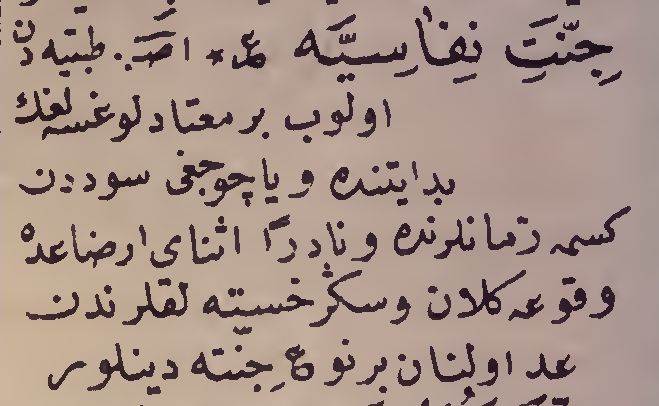 جِنَّتِ نِفَاسِيَّه ع * اصـ. طبیه دن
اولوب بر معتاد لوغسه لغك
بدایتنده و یا چوجغی سوددن
كسمه زمانلرنده و نادرًا اثنای ارضاعده
وقوعه كلان و سكز خسته لقلرندن
عد اولنان بر نوع جِنّته دینلور